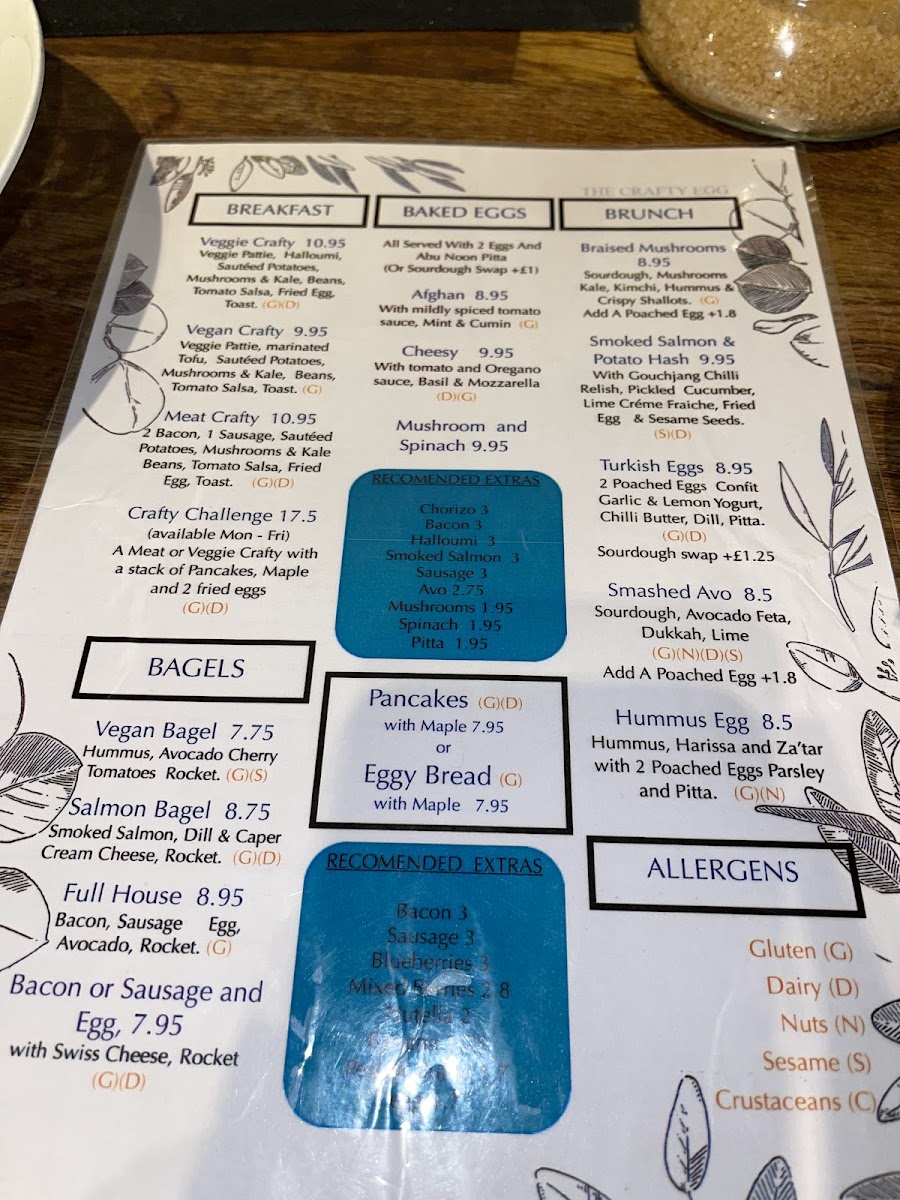 THE CRAFTY EGG
BREAKFAST
Veggie Crafty 10.95
Veggie Pattie, Halloumi,
Sautéed Potatoes,
Mushrooms & Kale, Beans,
Tomato Salsa, Fried Egg,
Toast. (G)(D)
Vegan Crafty 9.95
Veggie Pattie, marinated
Tofu, Sautéed Potatoes,
Mushrooms & Kale, Beans,
Tomato Salsa, Toast. (G)
Meat Crafty 10.95
2 Bacon, 1 Sausage, Sautéed
Potatoes, Mushrooms & Kale
Beans, Tomato Salsa, Fried
Egg, Toast. (G)(D)
Crafty Challenge 17.5
(available Mon - Fri)
A Meat or Veggie Crafty with
a stack of Pancakes, Maple
and 2 fried eggs
(G)(D)
BAGELS
Vegan Bagel 7.75
Hummus, Avocado Cherry
Tomatoes Rocket. (G)(S)
Salmon Bagel 8.75
Smoked Salmon, Dill & Caper
Cream Cheese, Rocket. (G)(D)
Full House 8.95
Bacon, Sausage Egg,
Avocado, Rocket. (G)
Bacon or Sausage and
Egg, 7.95
with Swiss Cheese, Rocket
(G)(D)
BAKED EGGS
All Served With 2 Eggs And
Abu Noon Pitta
(Or Sourdough Swap +£1)
Afghan 8.95
With mildly spiced tomato
sauce, Mint & Cumin (G)
Cheesy 9.95
With tomato and Oregano
sauce, Basil & Mozzarella
(D)(G)
Mushroom and
Spinach 9.95
RECOMENDED EXTRAS
Chorizo 3
Bacon 3
Halloumi 3
Smoked Salmon 3
Sausage 3
Avo 2.75
Mushrooms 1.95
Spinach 1.95
Pitta 1.95
Pancakes (G)(D)
with Maple 7.95
or
Eggy Bread (G)
with Maple 7.95
RECOMENDED EXTRAS
Bacon 3
Sausage 3
Blueberries 3
Mixed Berries 2.8
Nutella 2
BRUNCH
Braised Mushrooms
8.95
Sourdough, Mushrooms
Kale, Kimchi, Hummus &
Crispy Shallots. (G)
Add A Poached Egg +1.8
Smoked Salmon &
Potato Hash 9.95
With Gouchjang Chilli
Relish, Pickled Cucumber,
Lime Créme Fraiche, Fried
Egg & Sesame Seeds.
(S)(D)
Turkish Eggs 8.95
2 Poached Eggs Confit
Garlic & Lemon Yogurt,
Chilli Butter, Dill, Pitta.
(G)(D)
Sourdough swap +£1.25
Smashed Avo 8.5
Sourdough, Avocado Feta,
Dukkah, Lime
(G)(N)(D)(S)
Add A Poached Egg +1.8
Hummus Egg 8.5
Hummus, Harissa and Za'tar
with 2 Poached Eggs Parsley
and Pitta. (G)(N)
ALLERGENS
Gluten (G)
Dairy (D)
Nuts (N)
Sesame (S)
Crustaceans (C)